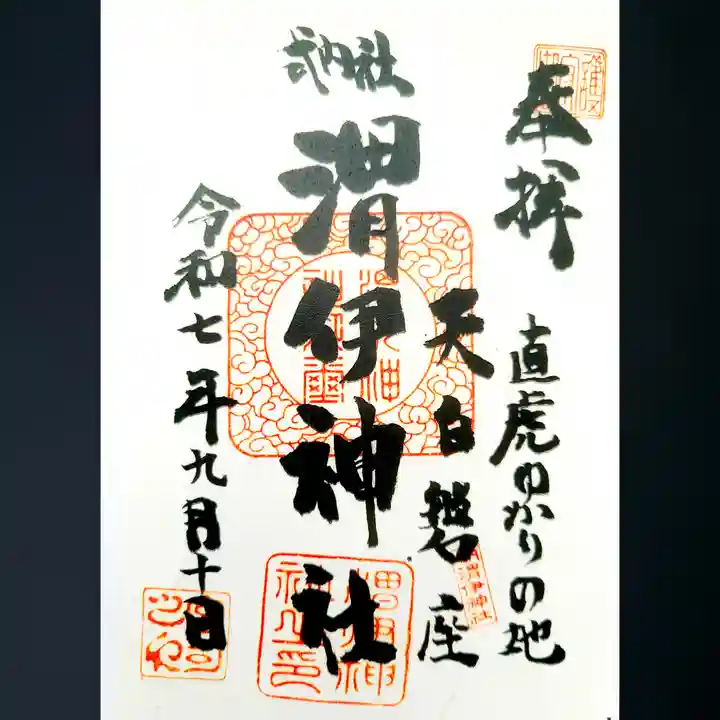 奉拝
直虎ゆかりの地
天白磐座
式内社
渭伊神社
令和七年九月十日
渭伊神社